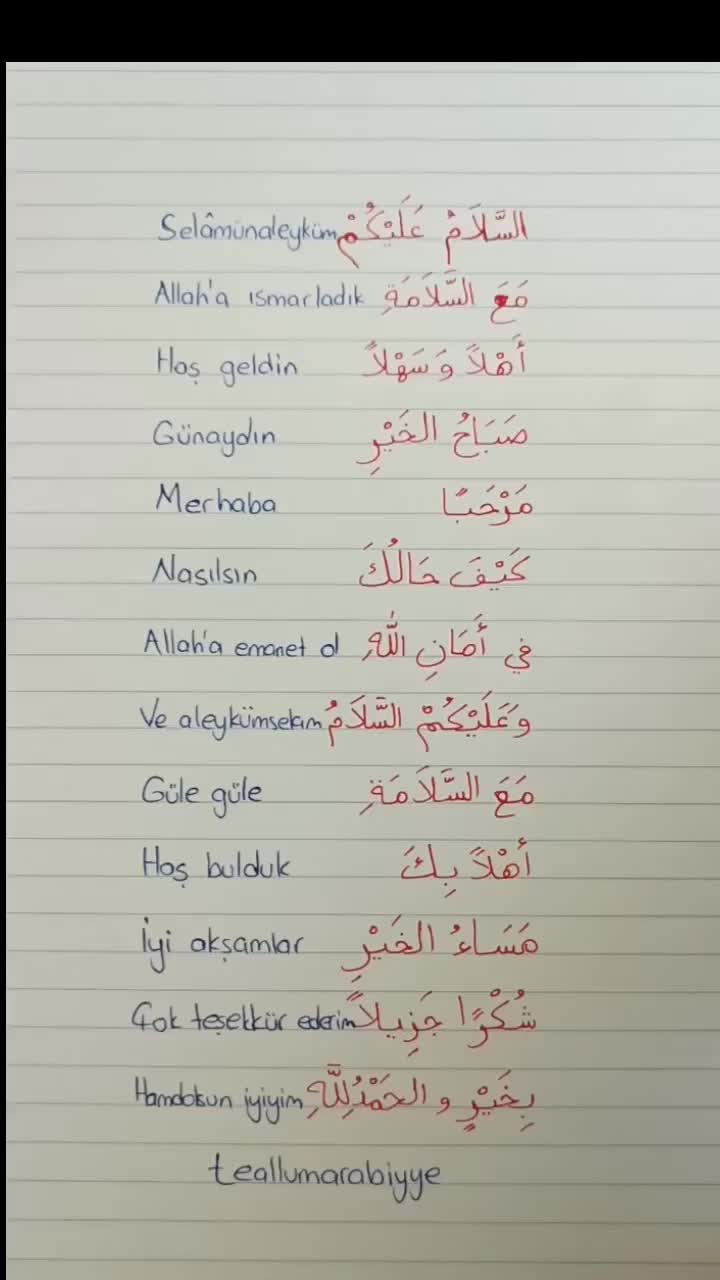 Selâmünaleyküm السَّلَامُ عَلَيْكُمْ
Allah'a ısmarladık مَعَ السَّلَامَةِ
Hoş geldin أَهْلاً وَسَهْلاً
Günaydın صَبَاحُ الخَيْرِ
Merhaba مَرْحَبًا
Nasılsın كَيْفَ حَالُكَ
Allah'a emanet ol في أَمَانِ اللّٰهِ
Ve aleykümselam وَعَلَيْكُمْ السَّلَامُ
Güle güle مَعَ السَّلَامَةِ
Hoş bulduk أَهْلاً بِكَ
İyi akşamlar مَسَاءُ الخَيْرِ
Çok teşekkür ederim شُكْرًا جَزِيلاً
Hamdolsun iyiyim بِخَيْرٍ و الحَمْدُلِلَّهِ
teallumarabiyye